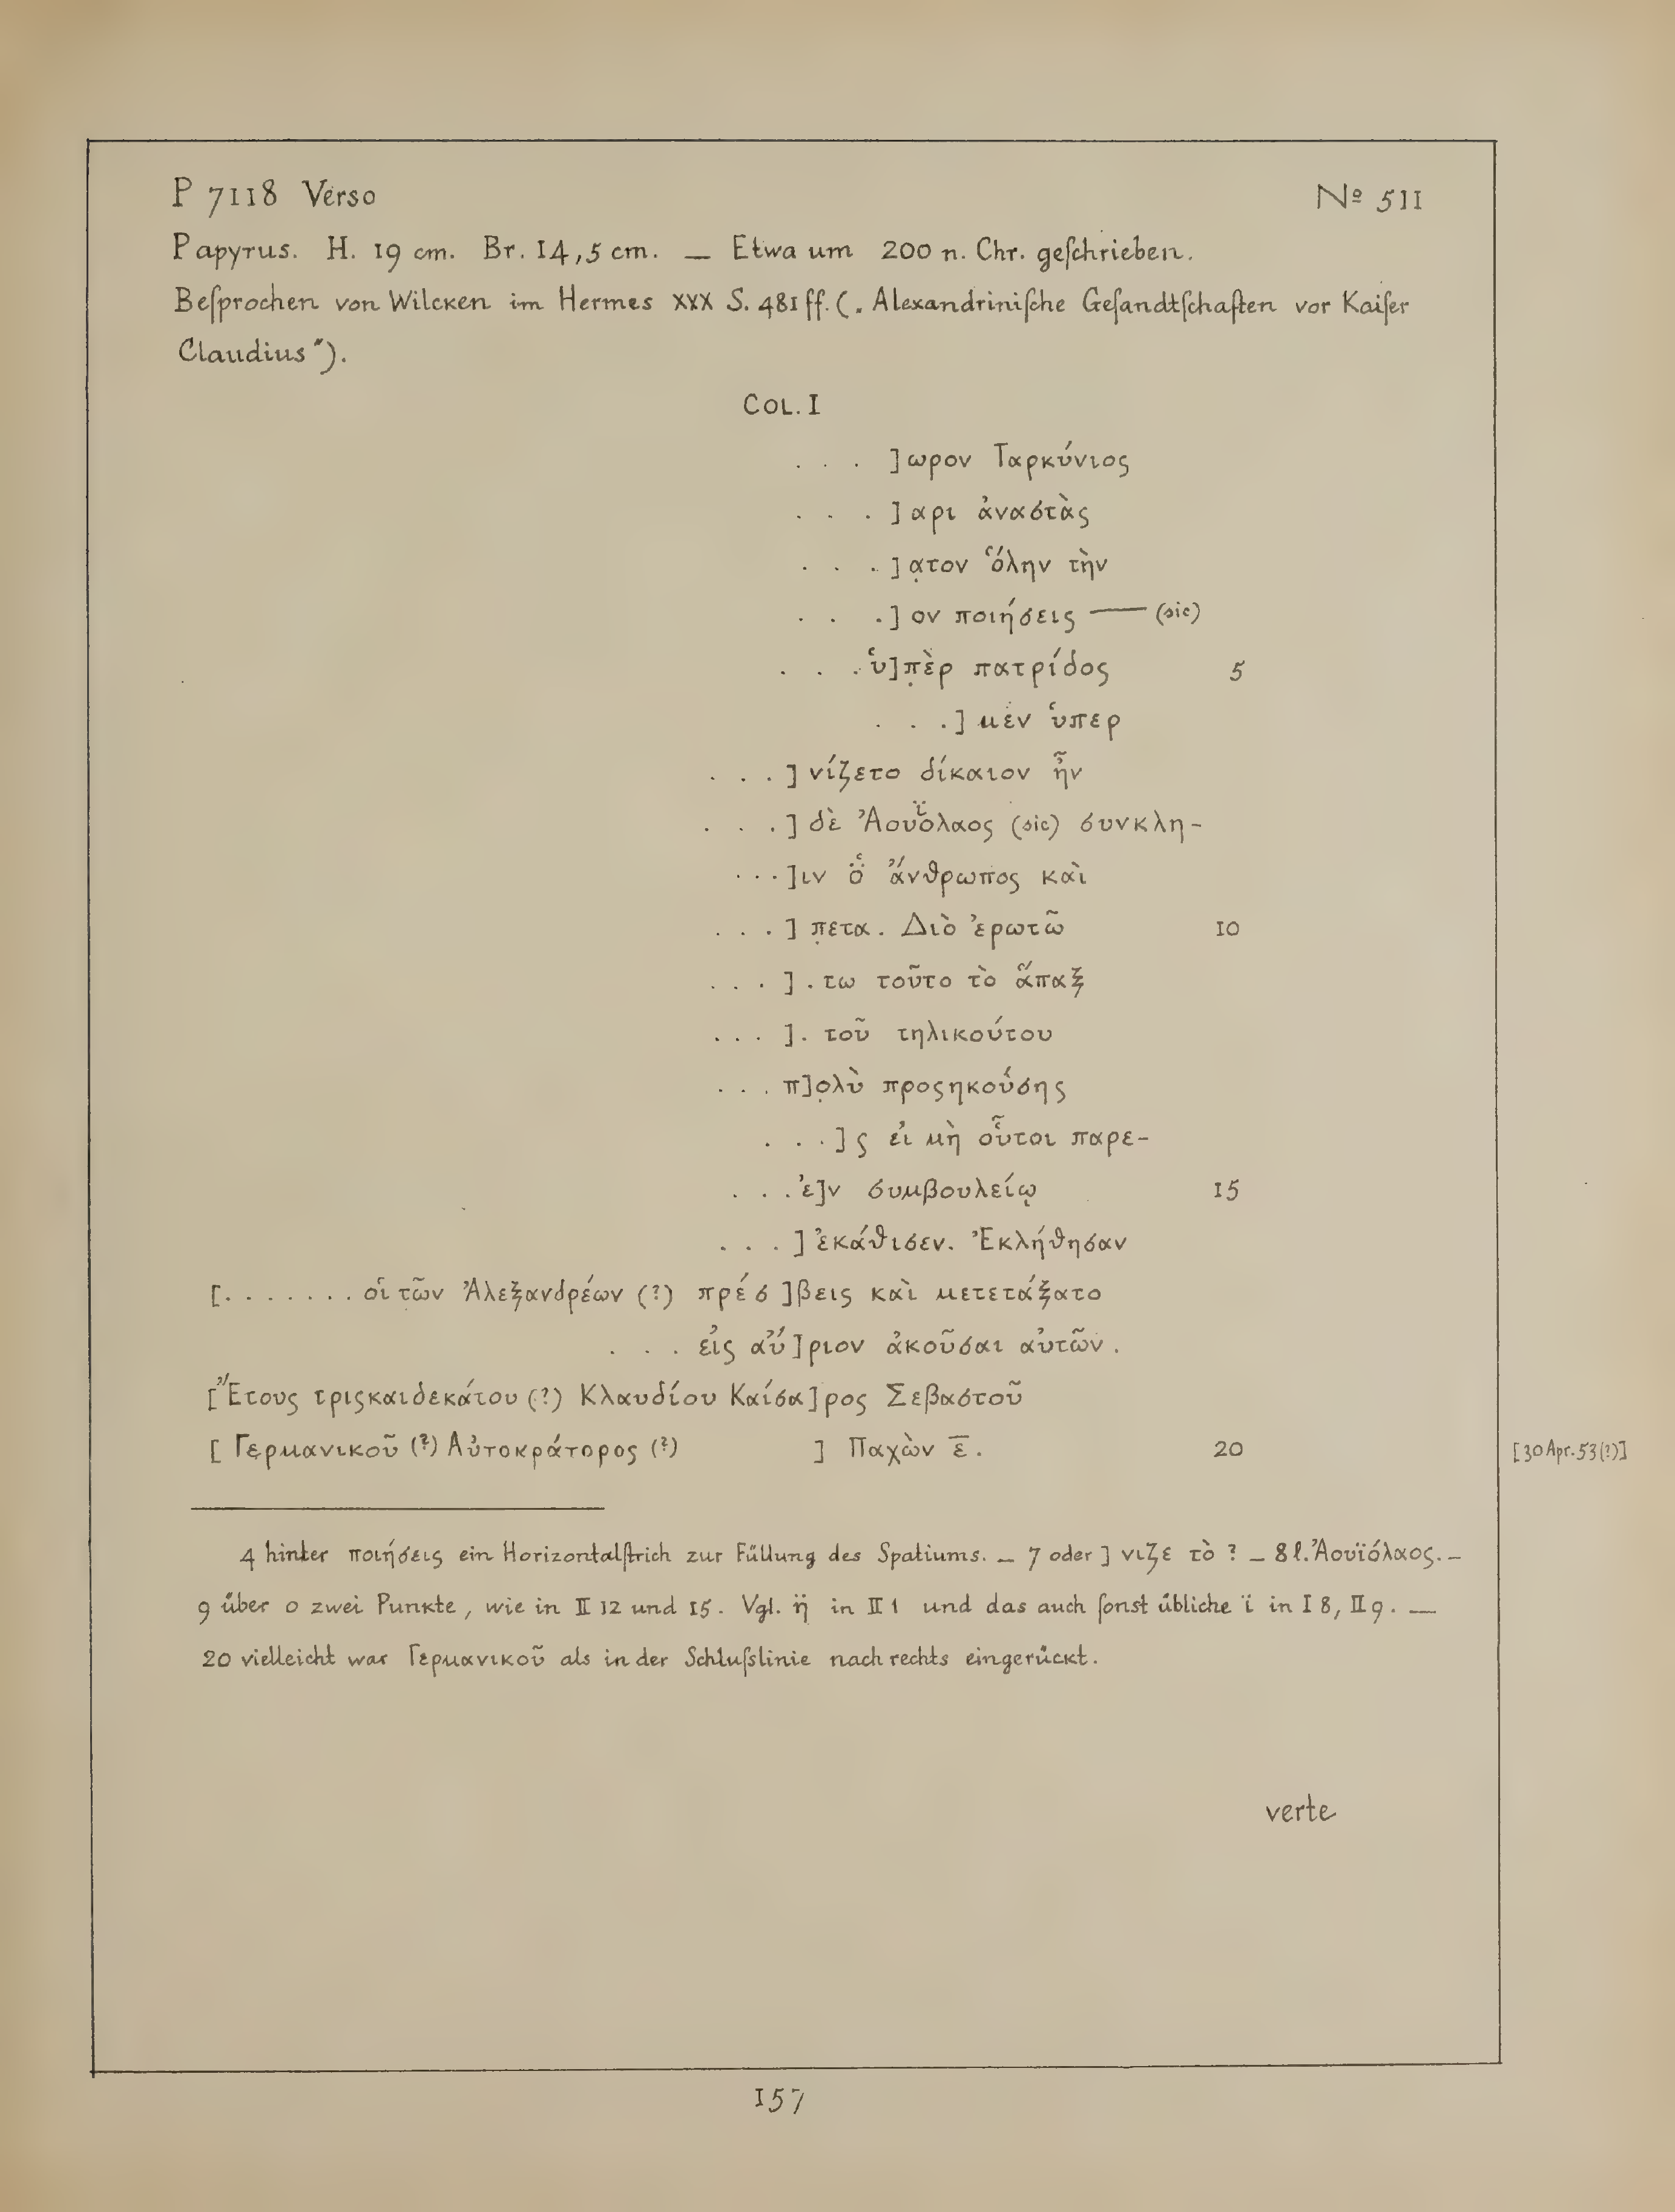 P 7118 Verso
Nº 511
Papyrus. H. 19 cm. Br. 14,5 cm. — Etwa um 200 n. Chr. geſchrieben.
Beſprochen von Wilcken im Hermes XXX S. 481 ff. („Alexandriniſche Geſandtſchaften vor Kaiſer
Claudius").
COL. I
. . . ]ωρον Ταρκύνιος
. . . ]αρι ἀναστὰς
. . . ]α̣τον ὅλην τὴν
. . . ]ον ποιήσεις —— (sic)
. . . ὑ]π̣ὲρ πατρίδος 5
. . . ] μεν ὑπερ
. . . ] νίζετο δίκαιον ἦν
. . . ] δὲ Ἀουὅλαος (sic) συνκλη-
. . . ]ιν ὁ̈ ἄνθρωπος καὶ
. . . ] π̣ετα. Διὸ ἐρωτῶ 10
. . . ] . τω τοῦτο τὸ ἅπαξ
. . . ]. τοῦ τηλικούτου
. . . π]ο̣λὺ προςηκούσης
. . . ]ς εἰ μὴ οὗτοι παρε-
. . . ἐ]ν συμβουλείῳ 15
. . . ] ἐκάθισεν. Ἐκλήθησαν
[. . . . . . . οἱ τῶν Ἀλεξανδρέων (?) πρέσ]βεις καὶ μετετάξατο
. . . εἰς αὔ]ριον ἀκοῦσαι αὐτῶν.
[Ἔτους τριςκαιδεκάτου (?) Κλαυδίου Καίσα]ρος Σεβαστοῦ
[ Γερμανικοῦ (?) Αὐτοκράτορος (?) ] Παχὼν ε̅. 20 [30 Apr. 53 (?)]
4 hinter ποιήσεις ein Horizontalſtrich zur Füllung des Spatiums. — 7 oder ] νιζε τὸ ? — 8 l. Ἀουϊόλαος. —
9 über o zwei Punkte, wie in II 12 und 15. Vgl. η̈ in II 1 und das auch ſonst übliche ϊ in I 8, II 9. —
20 vielleicht war Γερμανικοῦ als in der Schluſslinie nach rechts eingerückt.
verte
157